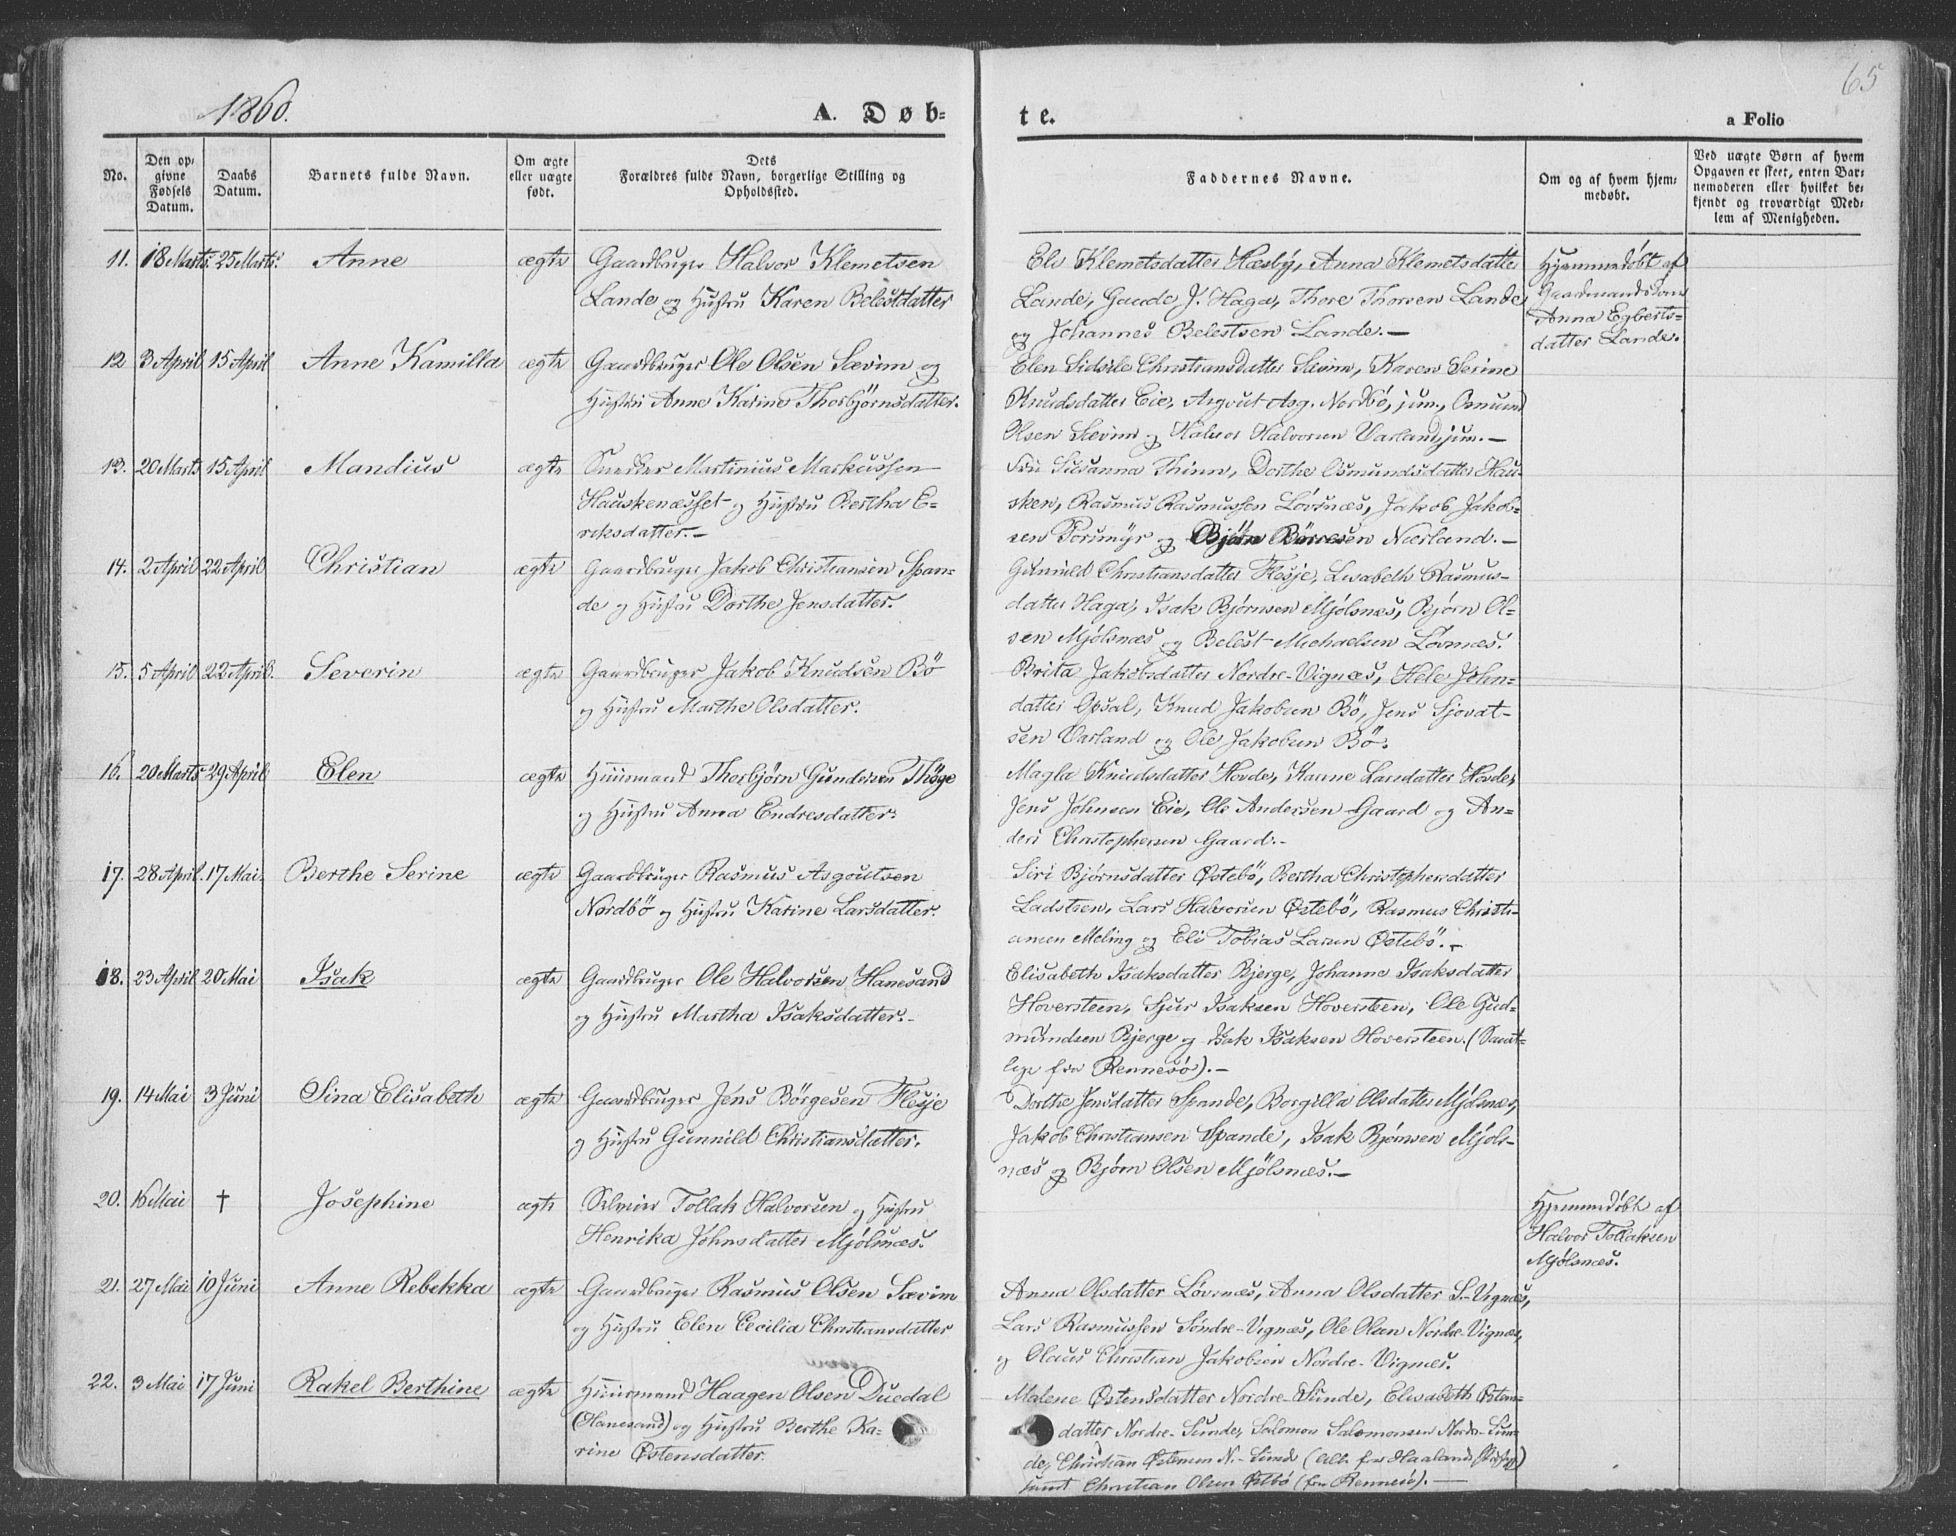 1860.
A. Døb-
te.
65
a Folio
No.
Den op-
givne
Fødsels
Datum.
Daabs
Datum.
Barnets fulde Navn.
Om ægte
eller uægte
født.
Dets
Forældres fulde Navn, borgerlige Stilling og
Opholdssted.
Faddernes Navne.
Om og af hvem hjem-
medøbt.
Ved uægte Børn af hvem
Opgaven er skeet, enten Bar-
nemoderen eller hvilket be-
kjendt og troværdigt Med-
lem af Menigheden.
11. 18 Marts. 25 Marts. Anne ægte Gaardbruger Halvor Klemetsen
Lande og Hustru Karen Belestdatter
Eli Klemetsdatter Hæsby, Anna Klemetsdatter
Lande, Gaude J. Haga, Thore Thorsen Lande,
og Johannes Belestsen Lande.—
Hjemmedøbt af
Gaardmandskone
Anna Egberts-
datter Lande.
12 3 April 15 April Anne Kamilla ægte Gaardbruger Ole Olsen Sævim og
Hustru Anne Karine Thorbjörnsdatter.
Elen Sidsele Christiansdatter Sævim, Karen Serine
Knudsdatter Eie, Asgout Asg. Nordbö, jun., Osmund
Olsen Sævim og Halvor Halvorsen Varland jun.—
13. 20 Marts 15 April Mandius ægte Snedker Martinius Markussen
Hauskenæsset og Hustru Bertha E-
riksdatter.—
Susanna Thinn, Dorthe Osmundsdatter Hau-
sken, Rasmus Rasmussen Lövsnæs, Jakob Jakob-
sen Forsmyr og Björn Börresen Nærland.—
14. 2 April 22 April Christian ægte Gaardbruger Jakob Christiansen Span-
de og Hustru Dorthe Jensdatter.
Gunnild Christiansdatter Flesje, Lisabeth Rasmus-
datter Haga, Isak Björnsen Mjölsnæs, Björn Ol-
sen Mjölsnæs og Belest Michaelsen Lövsnæs.
15. 5 April 22 April. Severin ægte Gaardbruger Jakob Knudsen Bö
og Hustru Marthe Olsdatter.
Brita Jakobsdatter Nordre-Vignæs, Hele John-
datter Opsal, Knud Jakobsen Bö, Jens Sjovat-
sen Varland og Ole Jakobsen Bö.
16. 20 Marts 29 April Elen ægte Huusmand Thorbjörn Gundersen Thöge
og Hustru Anna Endresdatter.
Magla Knudsdatter Hovde, Karine Larsdatter Hovde,
Jens Johnsen Eie, Ole Andersen Gaard og An-
ders Christophersen Gaard.-
17. 28 April. 17 Mai. Berthe Serine ægte Gaardbruger Rasmus Asgoutsen
Nordbö og Hustru Karine Larsdatter.
Siri Björnsdatter Östebö, Bertha Christophersdatter
Ladstein, Lars Halvorsen Östebö, Rasmus Christi-
ansen Meling og Eli Tobias Larsen Östebö.-
18. 23 April 20 Mai Isak ægte Gaardbruger Ole Halvorsen Hanesand
og Hustru Martha Isaksdatter.-
Elisabeth Isaksdatter Bjerge, Johanne Isaksdatter
Hoversteen, Sjur Isaksen Hoversteen, Ole Gud-
mundsen Bjerge og Isak Isaksen Hoversteen. (Samt-
lige fra Rennesö).—
19. 14 Mai 3 Juni Sina Elisabeth ægte Gaardbruger Jens Börgesen Flesje
og Hustru Gunnild Christiansdatter.
Dorthe Jensdatter Spande, Borgilla Olsdatter Mjölsnæs,
Jakob Christiansen Spande, Isak Björnsen Mjöls-
næs og Björn Olsen Mjölsnæs.—
20. 16 Mai † Josephine ægte Selveier Tollak Halvorsen og Hustru
Henrika Johnsdatter Mjölsnæs.
Hjemmedøbt af
Halvor Tollaksen
Mjölsnæs.
21. 27 Mai 10 Juni Anne Rebekka ægte Gaardbruger Rasmus Olsen Sævim
og Hustru Elen Cecilia Christiansdatter
Anna Olsdatter Lövsnæs, Anna Olsdatter S.-Vignæs,
Lars Rasmussen Söndre-Vignæs, Ole Olsen Nordre-Vignæs,
og Olaus Christian Jakobsen Nordre-Vignæs.
22. 3 Mai 17 Juni Rakel Berthine ægte Huusmand Haagen Olsen Duedal
(Hanesand) og Hustru Berthe Ka-
rine Östensdatter.
Malene Östensdatter Nordre-Sunde, Elisabeth Östens-
datter Nordre-Sunde, Salomon Salomonsen Nordre-Sun-
de, Christian Östensen N.-Sunde (alle fra Haalands
samt Christian Olsen Östbö (fra Rennesö).—